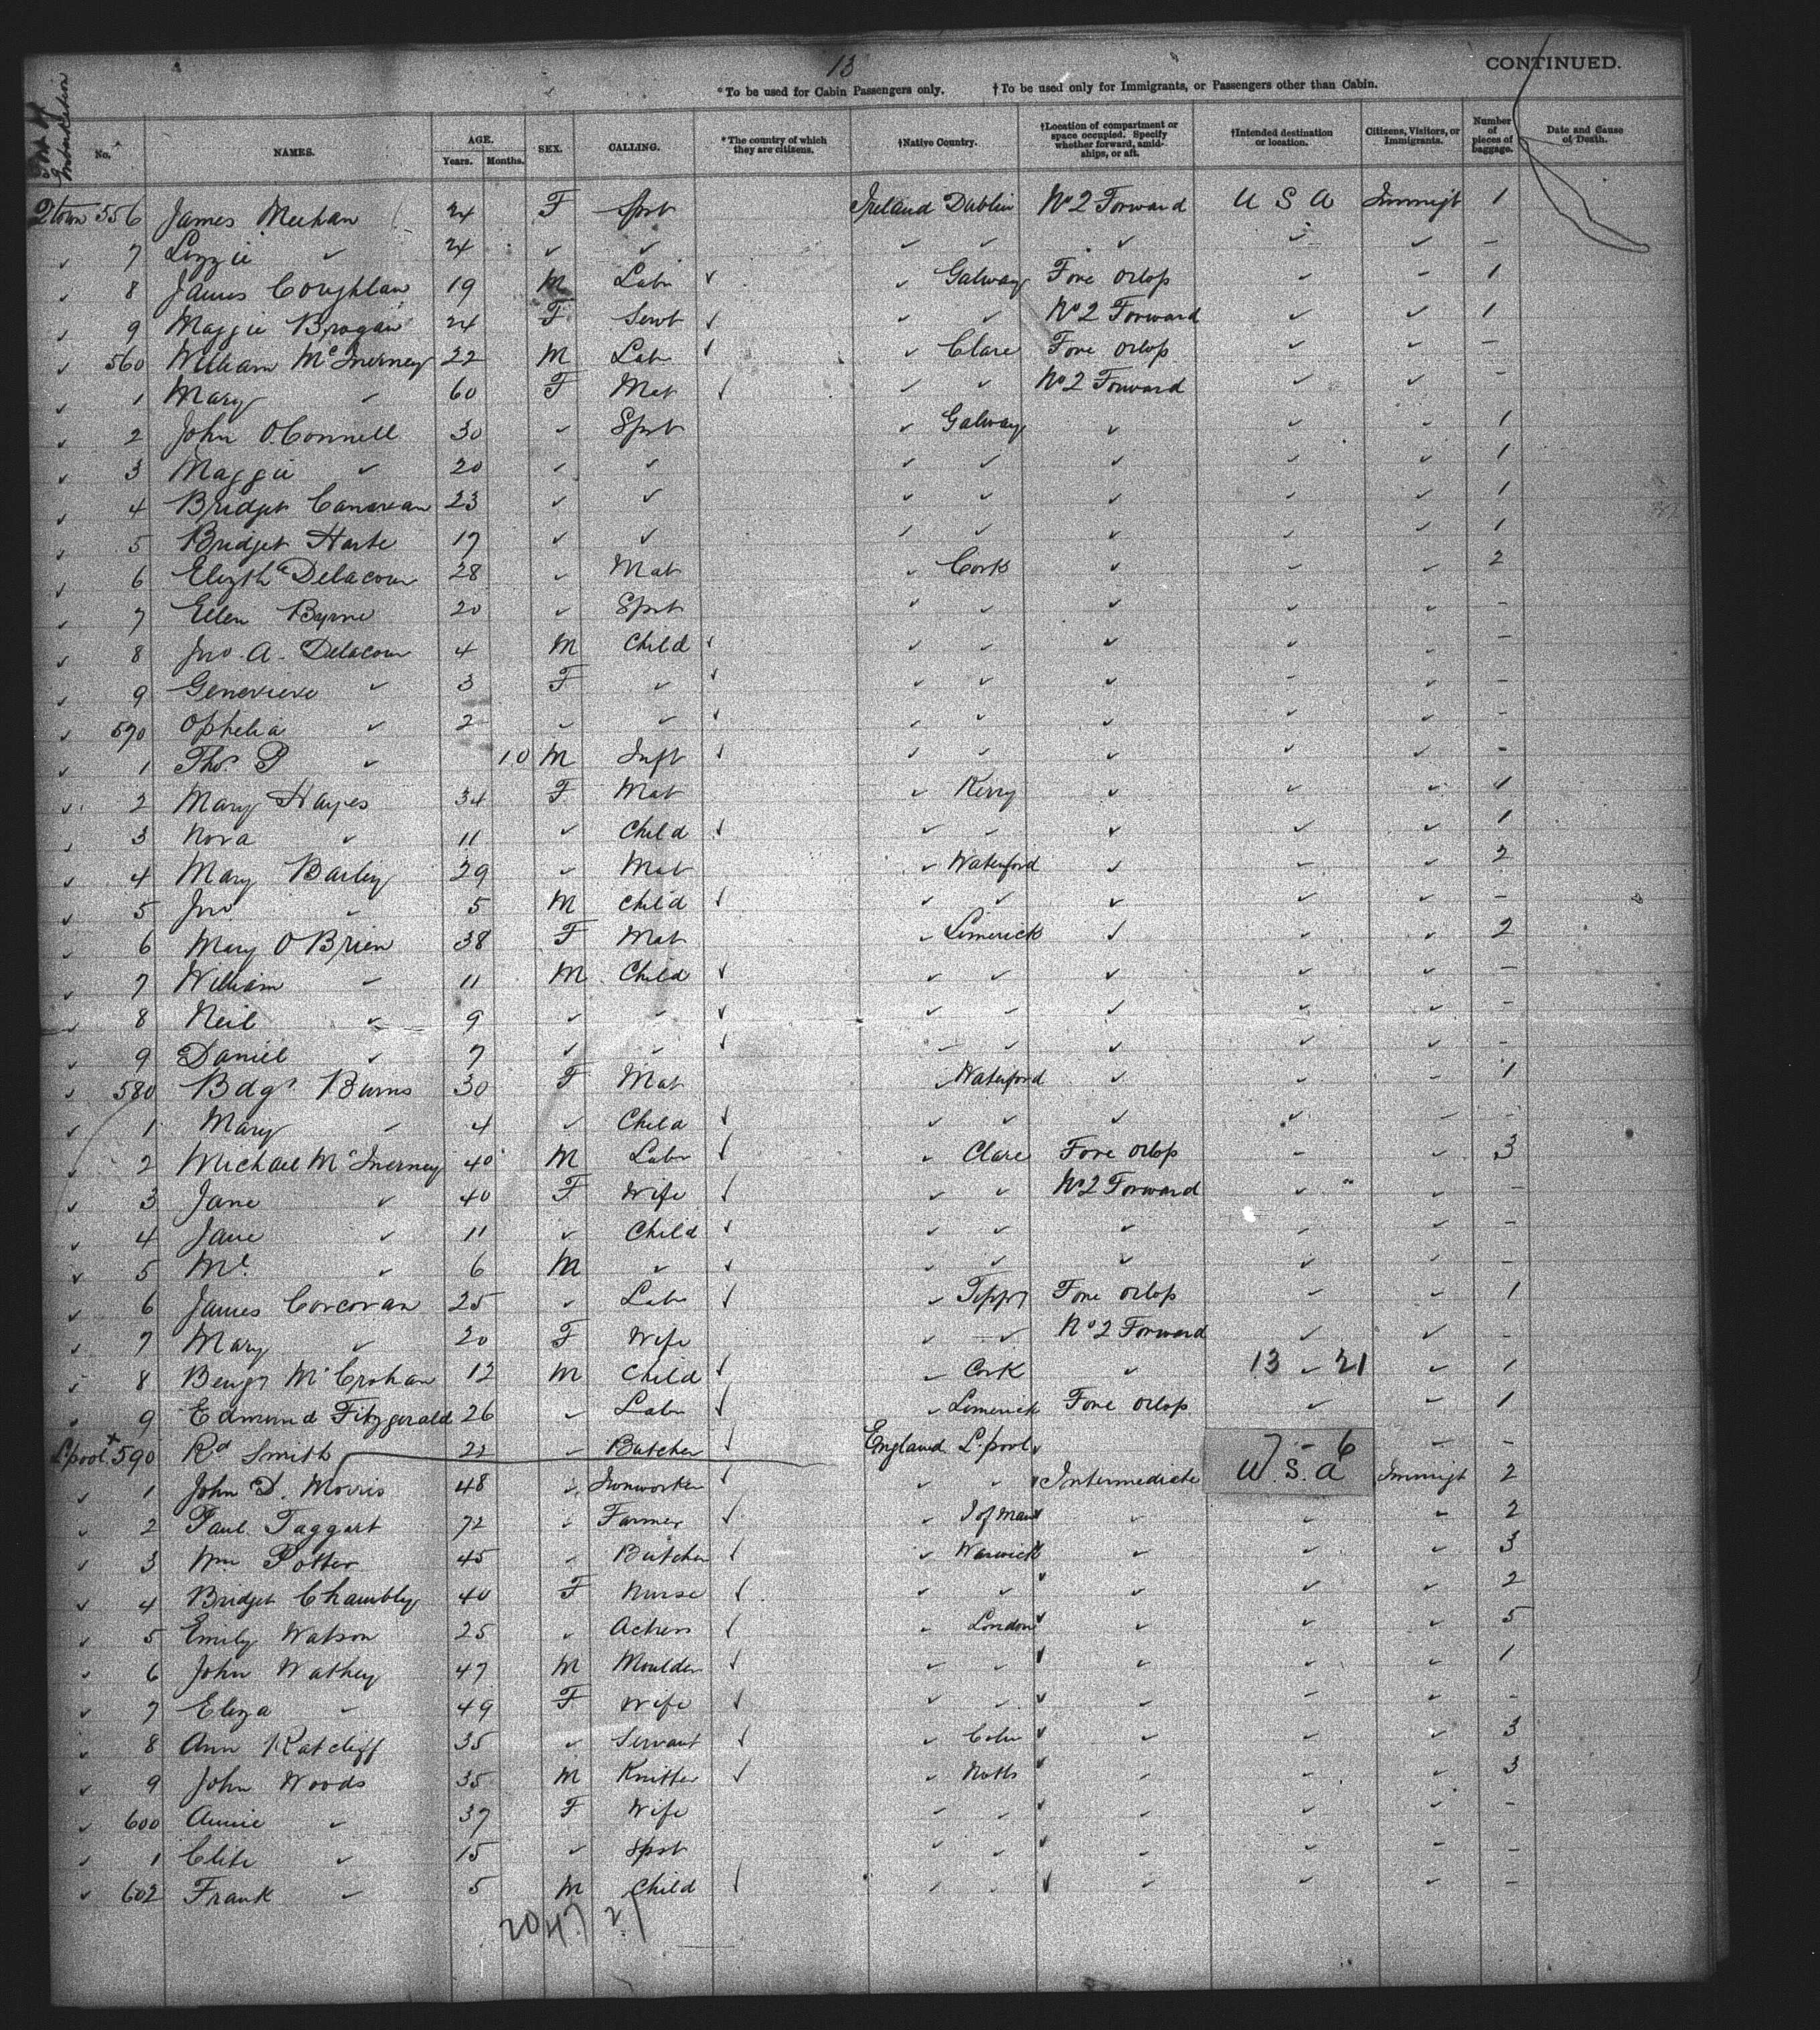 13
CONTINUED.
*To be used for Cabin Passengers only. †To be used only for Immigrants, or Passengers other than Cabin.
Port of Embarkation No. NAMES. AGE. Years. Months. SEX. CALLING. *The country of which they are citizens. †Native Country. †Location of compartment or space occupied. Specify whether forward, amidships, or aft. †Intended destination or location. Citizens, Visitors, or Immigrants. Number of pieces of baggage. Date and Cause of Death.
Qtown 556 James Meehan 24 F Spst Ireland Dublin No 2 Forward U S A Immigt 1
✓ 7 Lizzie ✓ 24 ✓ ✓ ✓ ✓ ✓ ✓ ✓ –
✓ 8 James Coughlan 19 M Labr ✓ ✓ Galway Fore orlop ✓ ✓ 1
✓ 9 Maggie Brogan 24 F Servt ✓ ✓ ✓ No 2 Forward ✓ ✓ 1
✓ 560 William McInerney 22 M Labr ✓ ✓ Clare Fore orlop ✓ ✓ –
✓ 1 Mary ✓ 60 F Mat ✓ ✓ ✓ No 2 Forward ✓ ✓ –
✓ 2 John OConnell 30 ✓ Spst ✓ Galway ✓ ✓ ✓ 1
✓ 3 Maggie ✓ 20 ✓ ✓ ✓ ✓ ✓ ✓ ✓ 1
✓ 4 Bridget Canavan 23 ✓ ✓ ✓ ✓ ✓ ✓ ✓ 1
✓ 5 Bridget Harte 17 ✓ ✓ ✓ ✓ ✓ ✓ ✓ 1
✓ 6 Elizth Delacour 28 ✓ Mat ✓ Cork ✓ ✓ ✓ 2
✓ 7 Ellen Byrne 20 ✓ Spst ✓ ✓ ✓ ✓ ✓ –
✓ 8 Jno. A. Delacour 4 M Child ✓ ✓ ✓ ✓ ✓ ✓ –
✓ 9 Genevieve ✓ 3 F ✓ ✓ ✓ ✓ ✓ ✓ ✓ –
✓ 570 Ophelia ✓ 2 ✓ ✓ ✓ ✓ ✓ ✓ ✓ ✓ –
✓ 1 Thos. P ✓ 10 M Inft ✓ ✓ ✓ ✓ ✓ ✓ –
✓ 2 Mary Hayes 34 F Mat ✓ Kerry ✓ ✓ ✓ 1
✓ 3 Nora ✓ 11 ✓ Child ✓ ✓ ✓ ✓ ✓ ✓ 1
✓ 4 Mary Barley 29 ✓ Mat ✓ Waterford ✓ ✓ ✓ 2
✓ 5 Jno ✓ 5 M Child ✓ ✓ ✓ ✓ ✓ ✓ –
✓ 6 Mary O Brien 38 F Mat ✓ Limerick ✓ ✓ ✓ 2
✓ 7 William ✓ 11 M Child ✓ ✓ ✓ ✓ ✓ ✓ –
✓ 8 Neil ✓ 9 ✓ ✓ ✓ ✓ ✓ ✓ ✓ ✓ –
✓ 9 Daniel ✓ 7 ✓ ✓ ✓ ✓ ✓ ✓ ✓ ✓ –
✓ 580 Bdgt Burns 30 F Mat ✓ Waterford ✓ ✓ ✓ 1
✓ 1 Mary ✓ 4 ✓ Child ✓ ✓ ✓ ✓ ✓ ✓ –
✓ 2 Michael McInerney 40 M Labr ✓ ✓ Clare Fore orlop ✓ ✓ 3
✓ 3 Jane ✓ 40 F Wife ✓ ✓ ✓ No 2 Forward ✓ ✓ –
✓ 4 Jane ✓ 11 ✓ Child ✓ ✓ ✓ ✓ ✓ ✓ –
✓ 5 Ml. ✓ 6 M ✓ ✓ ✓ ✓ ✓ ✓ ✓ –
✓ 6 James Corcoran 25 ✓ Labr ✓ ✓ Tippy Fore orlop ✓ ✓ 1
✓ 7 Mary ✓ 20 F Wife ✓ ✓ No 2 Forward ✓ ✓ –
✓ 8 Benjn McCrohan 12 M Child ✓ ✓ Cork ✓ 13 – 21 ✓ 1
✓ 9 Edmund Fitzgerald 26 ✓ Labr ✓ ✓ Limerick Fore orlop ✓ ✓ 1
Lpool + 590 Rd Smith 22 ✓ Butcher ✓ England L.pool ✓ 7 – 6 ✓ –
✓ 1 John D. Morris 48 ✓ Ironworker ✓ ✓ ✓ Intermediate U.S.A Immigt 2
✓ 2 Paul Taggart 72 ✓ Farmer ✓ ✓ I of Man ✓ ✓ ✓ 2
✓ 3 Wm Potter 45 ✓ Butcher ✓ ✓ Warwick ✓ ✓ ✓ 3
✓ 4 Bridget Chambly 40 F Nurse ✓ ✓ ✓ ✓ ✓ ✓ 2
✓ 5 Emily Watson 25 ✓ Actress ✓ ✓ London ✓ ✓ ✓ 5
✓ 6 John Wathey 47 M Moulder ✓ ✓ ✓ ✓ ✓ ✓ 1
✓ 7 Eliza ✓ 49 F Wife ✓ ✓ ✓ ✓ ✓ ✓ –
✓ 8 Ann Ratcliff 35 ✓ Servant ✓ ✓ ✓ ✓ ✓ 3
✓ 9 John Woods 35 M Knitter ✓ ✓ Notts ✓ ✓ ✓ 3
✓ 600 Annie ✓ 37 F Wife ✓ ✓ ✓ ✓ ✓ –
✓ 1 ✓ 15 ✓ Spst ✓ ✓ ✓ ✓ ✓ –
✓ 602 Frank ✓ 5 M Child ✓ ✓ ✓ ✓ ✓ ✓ –